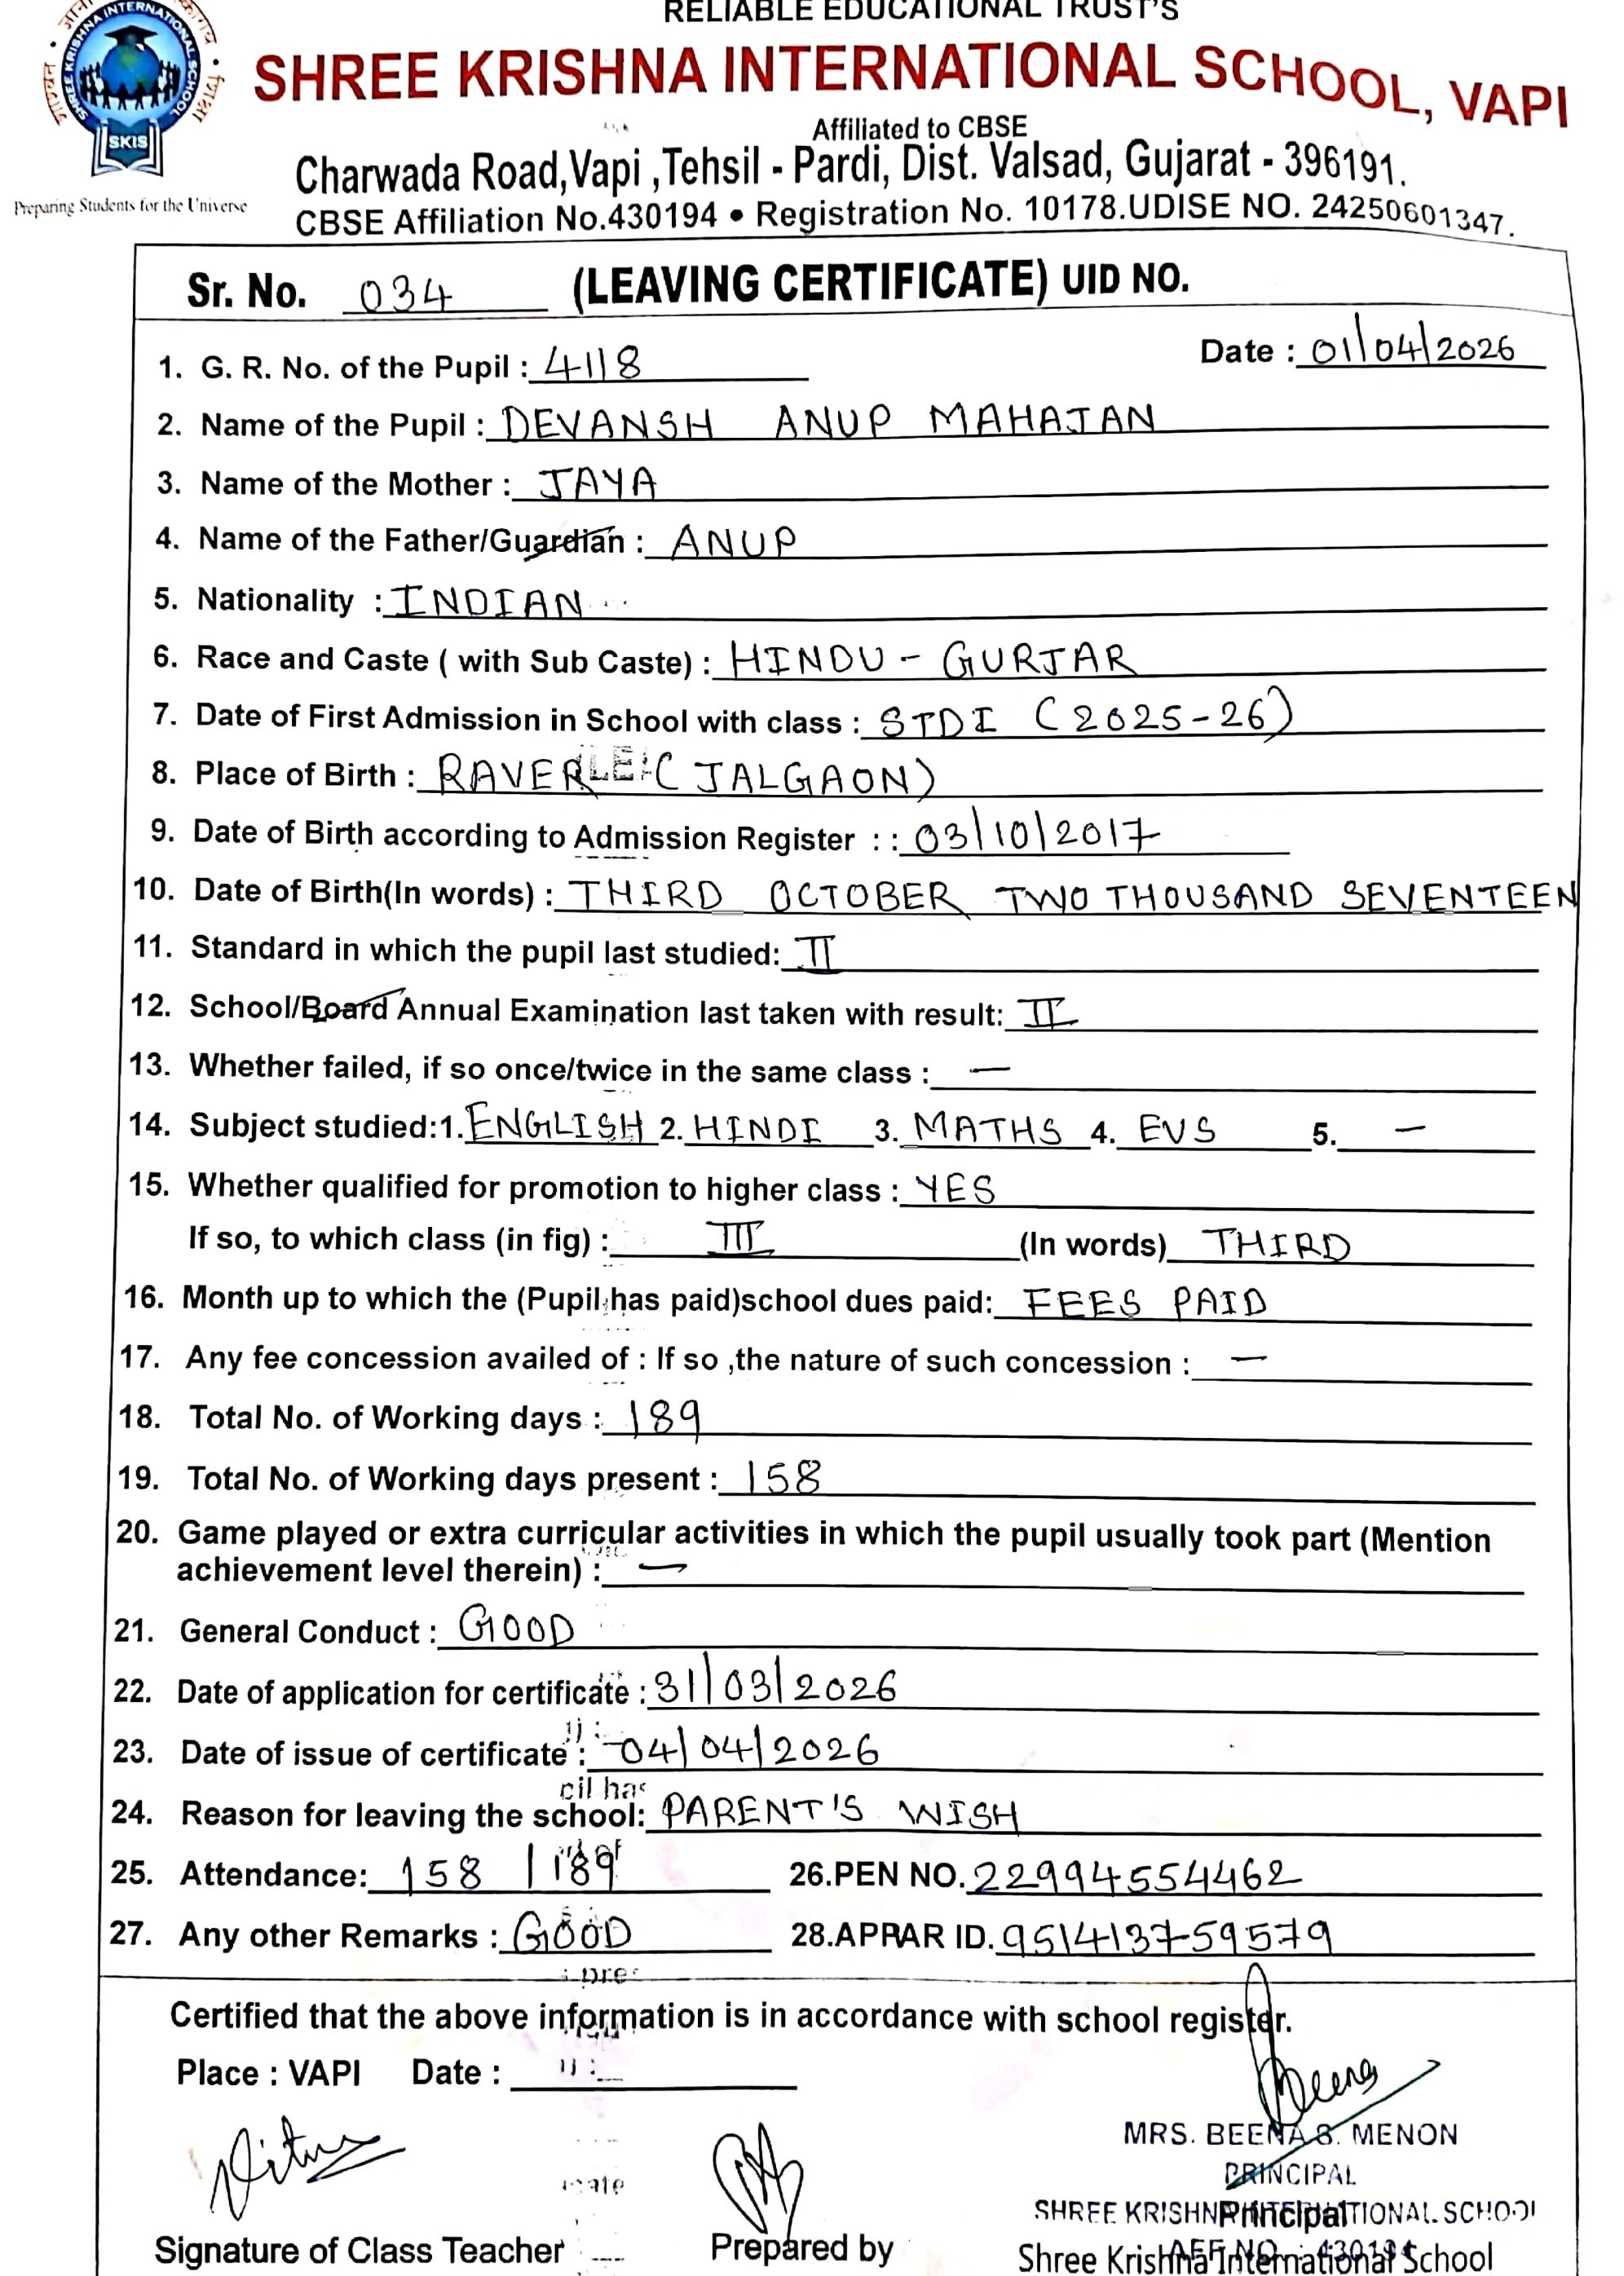 RELIABLE EDUCATIONAL TRUST'S
SHREE KRISHNA INTERNATIONAL SCHOOL, VAPI
SHREE KRISHNA INTERNATIONAL SCHOOL
SKIS
Preparing Students for the Universe
Affiliated to CBSE
Charwada Road,Vapi ,Tehsil - Pardi, Dist. Valsad, Gujarat - 396191.
CBSE Affiliation No.430194 • Registration No. 10178.UDISE NO. 24250601347.
Sr. No. 034 (LEAVING CERTIFICATE) UID NO.
Date : 01/04/2026
1. G. R. No. of the Pupil : 4118
2. Name of the Pupil : DEVANSH ANUP MAHAJAN
3. Name of the Mother : JAYA
4. Name of the Father/Guardian : ANUP
5. Nationality : INDIAN
6. Race and Caste ( with Sub Caste) : HINDU - GURJAR
7. Date of First Admission in School with class : STD I (2025-26)
8. Place of Birth : RAVER (JALGAON)
9. Date of Birth according to Admission Register : : 03/10/2017
10. Date of Birth(In words) : THIRD OCTOBER TWO THOUSAND SEVENTEEN
11. Standard in which the pupil last studied: II
12. School/Board Annual Examination last taken with result: II
13. Whether failed, if so once/twice in the same class : —
14. Subject studied:1. ENGLISH 2. HINDI 3. MATHS 4. EVS 5. —
15. Whether qualified for promotion to higher class : YES
If so, to which class (in fig) : III (In words) THIRD
16. Month up to which the (Pupil has paid)school dues paid: FEES PAID
17. Any fee concession availed of : If so ,the nature of such concession : —
18. Total No. of Working days : 189
19. Total No. of Working days present : 158
20. Game played or extra curricular activities in which the pupil usually took part (Mention
achievement level therein) : —
21. General Conduct : GOOD
22. Date of application for certificate : 31/03/2026
23. Date of issue of certificate : 04/04/2026
24. Reason for leaving the school: PARENT'S WISH
25. Attendance: 158 / 189 26.PEN NO. 22994554462
27. Any other Remarks : GOOD 28.APRAR ID. 951413759579
Certified that the above information is in accordance with school register.
Place : VAPI Date :
MRS. BEENA S. MENON
PRINCIPAL
SHREE KRISHNA INTERNATIONAL SCHOOL
Principal
AFF NO. : 430194
Signature of Class Teacher Prepared by Shree Krishna International School